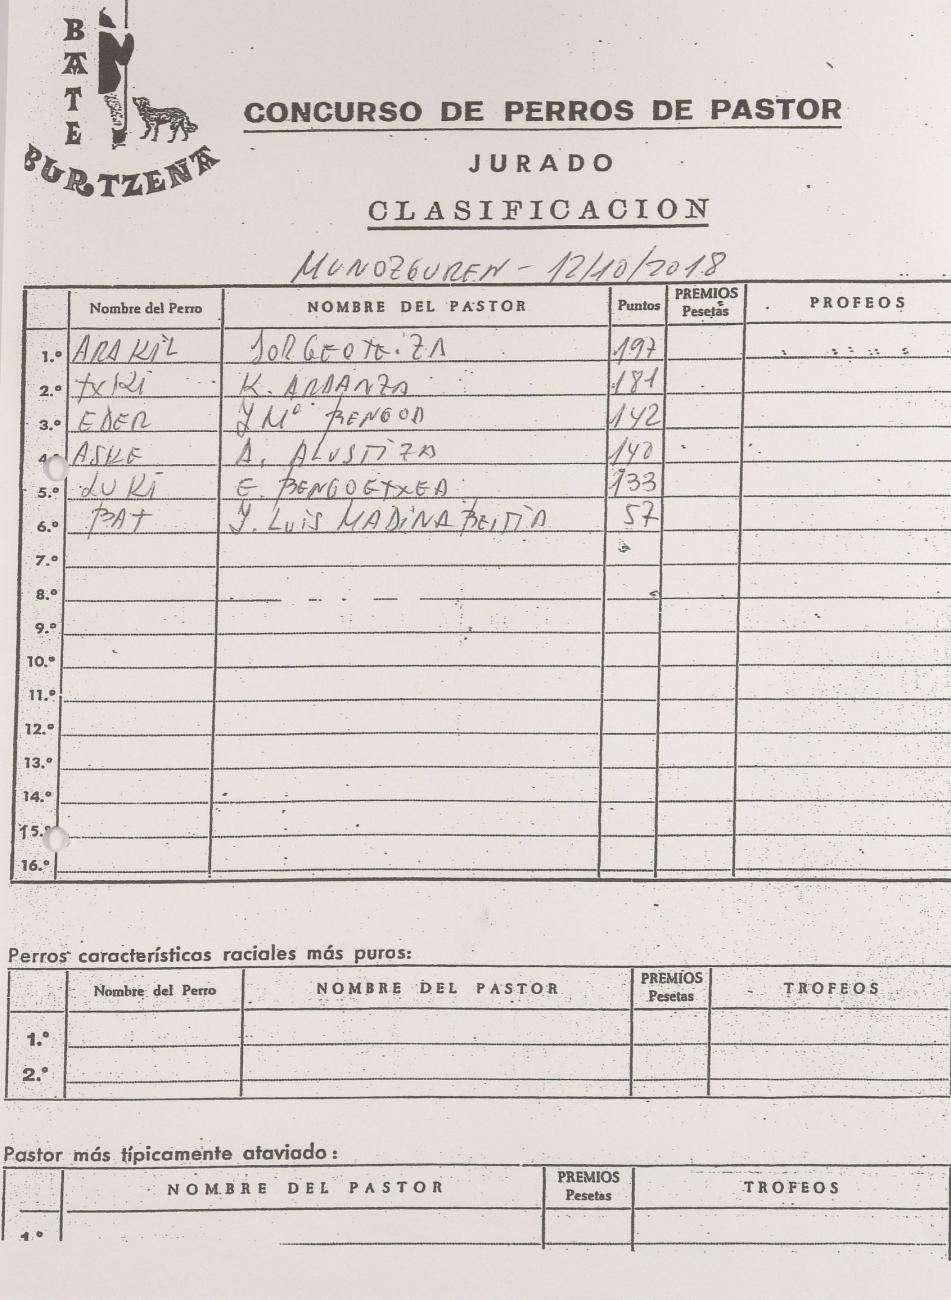 BATE
BURTZENA
CONCURSO DE PERROS DE PASTOR
JURADO
CLASIFICACION
MUNOZGUREN - 12/10/2018
Nombre del Perro NOMBRE DEL PASTOR Puntos PREMIOS Pesetas PROFEOS
1.º ARAKIL JORGE OTEIZA 197
2.º TXIKI K. ARDANZA 181
3.º EDER J Mª BENGOA 142
4.º ASKE A. ALUSTIZA 140
5.º LUKI E. BENGOETXEA 133
6.º BAT J. LUIS MADINABEITIA 57
7.º
8.º
9.º
10.º
11.º
12.º
13.º
14.º
15.º
16.º
Perros características raciales más puros:
Nombre del Perro NOMBRE DEL PASTOR PREMIOS Pesetas TROFEOS
1.º
2.º
Pastor más típicamente ataviado:
NOMBRE DEL PASTOR PREMIOS Pesetas TROFEOS
1.º